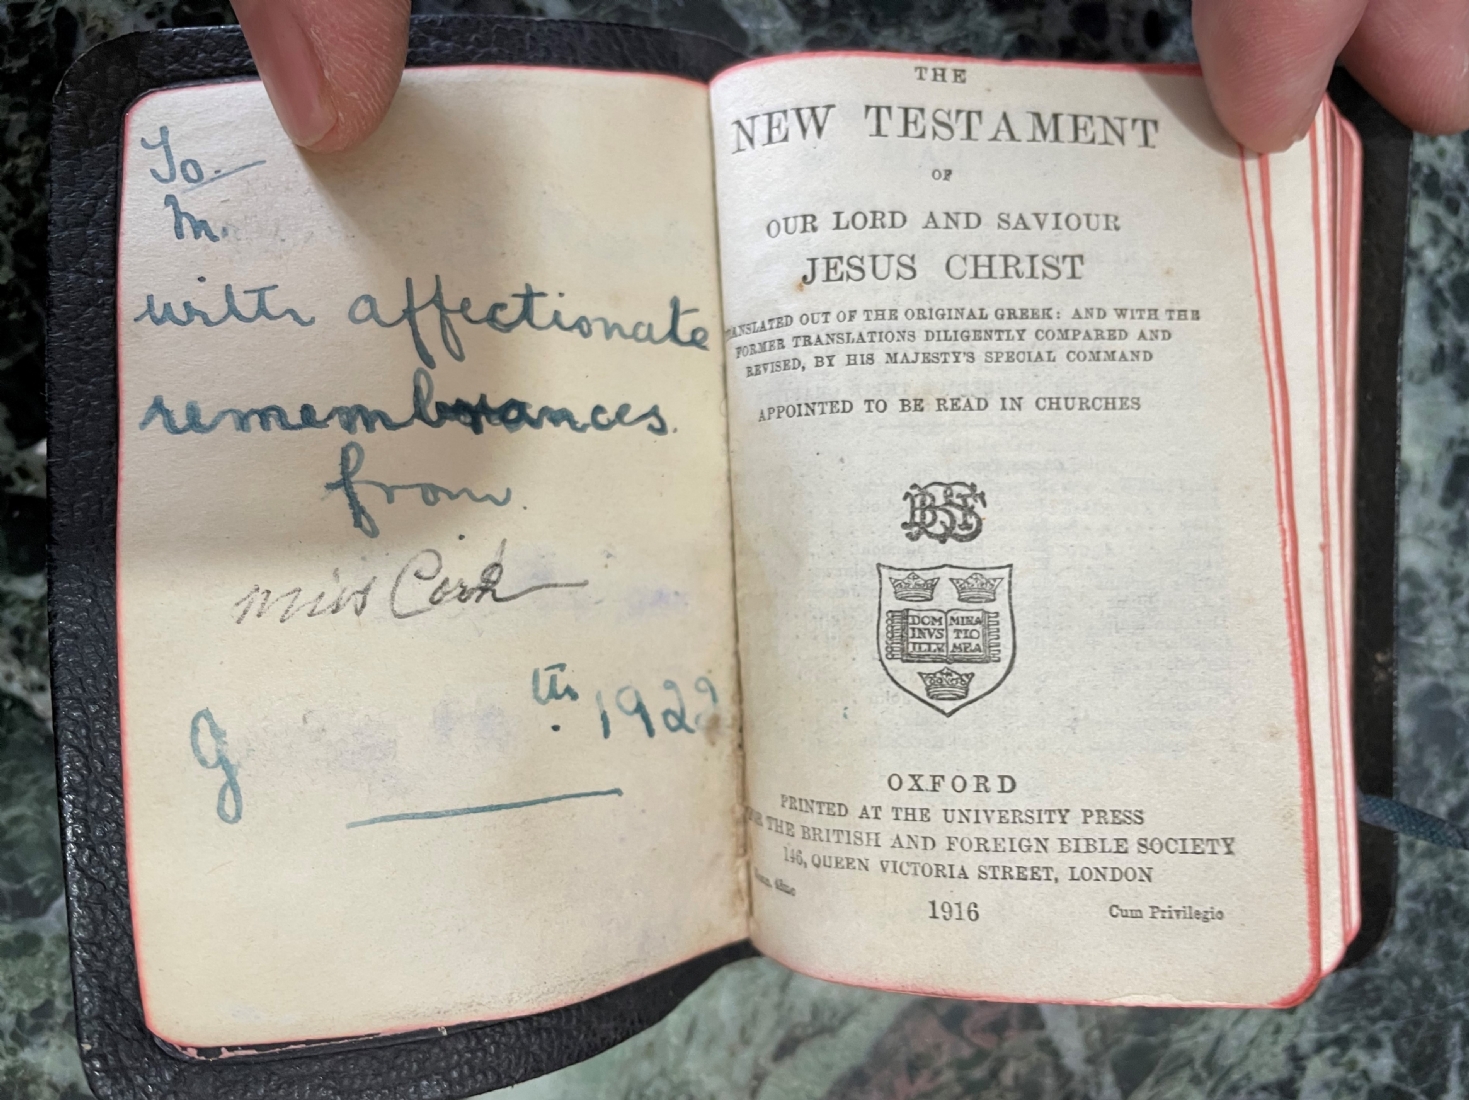 To.
M.
with affectionate
remembrances.
from
Miss
G th. 1922
THE
NEW TESTAMENT
OF
OUR LORD AND SAVIOUR
JESUS CHRIST
TRANSLATED OUT OF THE ORIGINAL GREEK: AND WITH THE
FORMER TRANSLATIONS DILIGENTLY COMPARED AND
REVISED, BY HIS MAJESTY'S SPECIAL COMMAND
APPOINTED TO BE READ IN CHURCHES
BFBS
DOM MINA
INVS TIO
ILLV MEA
OXFORD
PRINTED AT THE UNIVERSITY PRESS
FOR THE BRITISH AND FOREIGN BIBLE SOCIETY
146, QUEEN VICTORIA STREET, LONDON
48mo
1916 Cum Privilegio